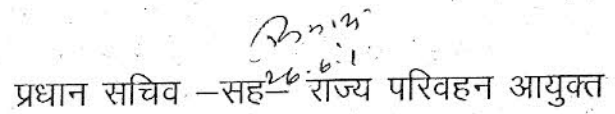 प्रधान सचिव –सह– राज्य परिवहन आयुक्त